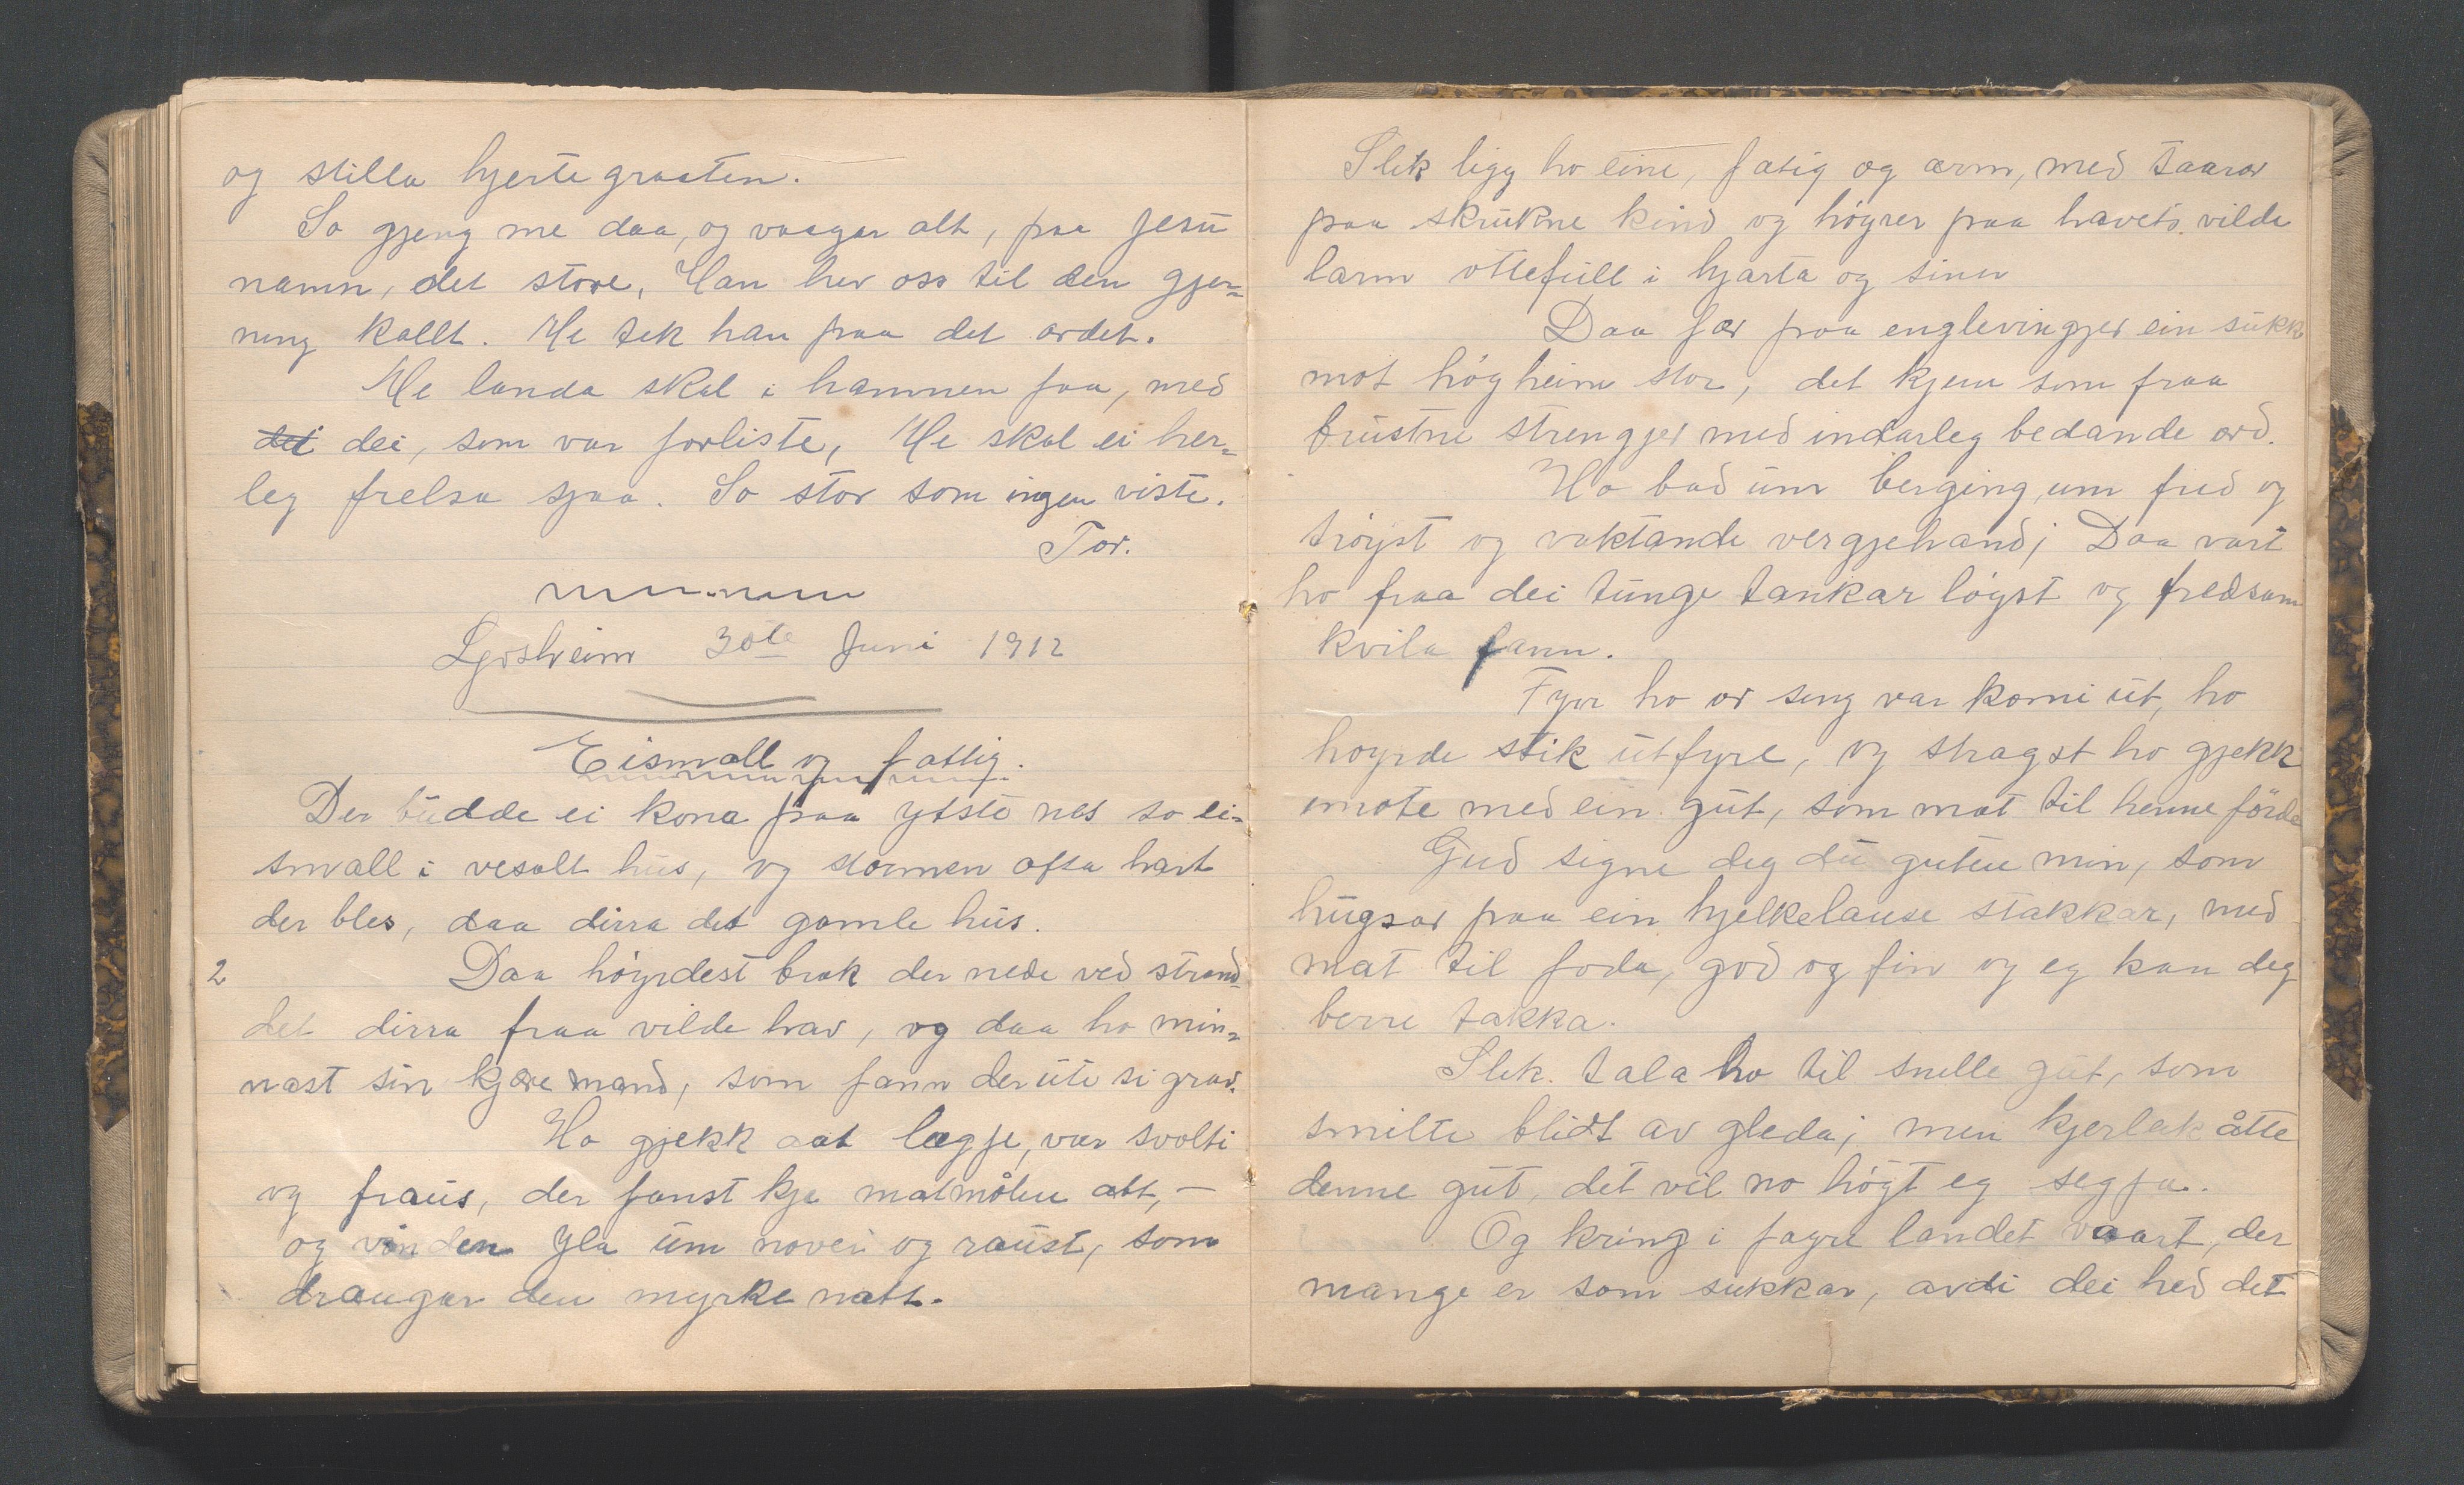 og stilla hjertegraaten.
So gjeng me daa, og vaagar alt, paa Jesu
namn, det store, Han hev oss til den gjer=
ning kallt. Me tek han paa det ordet.
Me landa skal i hamnen faa, med
det dei, som var forliste, Me skal ei her=
leg frelsa sjaa. So stor som ingen viste.
Tor.
30te Juni 1912
Eismall og fattig.
Der budde ei kona paa ytste nes so ei=
small i vesalt hus, og stormen ofta hart
der bles, daa dirra det gamle hus.
2 Daa høyrdest brak der nede ved strand
det dirra fraa vilde hav, og daa ho min=
nast sin kjære mand, som fann der ute si grav.
Ho gjekk aat lægje, var svolti
og fraus, der fanst kje matmålen att,-
og vinden yla um nover og raust, som
draugar den myrke natt.
Slik ligg ho eine, fatig og arm, med taarar
paa skrukne kind og høyrer paa havets vilde
larm ottefull i hjarta og sinn
Daa far paa englevingjer ein sukk
mot høgheim stor, det kjem som fraa
brustne strengjer med inderleg bedande ord.
Ho bad um berging, um fred og
trøyst og vaktande vergjehand; Daa vart
ho fraa dei tunge tankar løyst og fredsam
kvila fann.
Fyrr ho or seng var komi ut, ho
høyrde stik utfyre, og stragst ho gjekk
imote med ein gut, som mat til henne förde
Gud signe deg du guten min, som
hugsar paa ein hjelkelause stakkar, med
mat til foda, god og fin og eg kan deg
berre takka.
Slik tala ho til snille gut, som
smilte blidt av gleda; men kjerleik åtte
denne gut, det vil no högt eg segja.
Og kring i fagre landet vaart, der
mange er som sukkar, avdi dei hed det